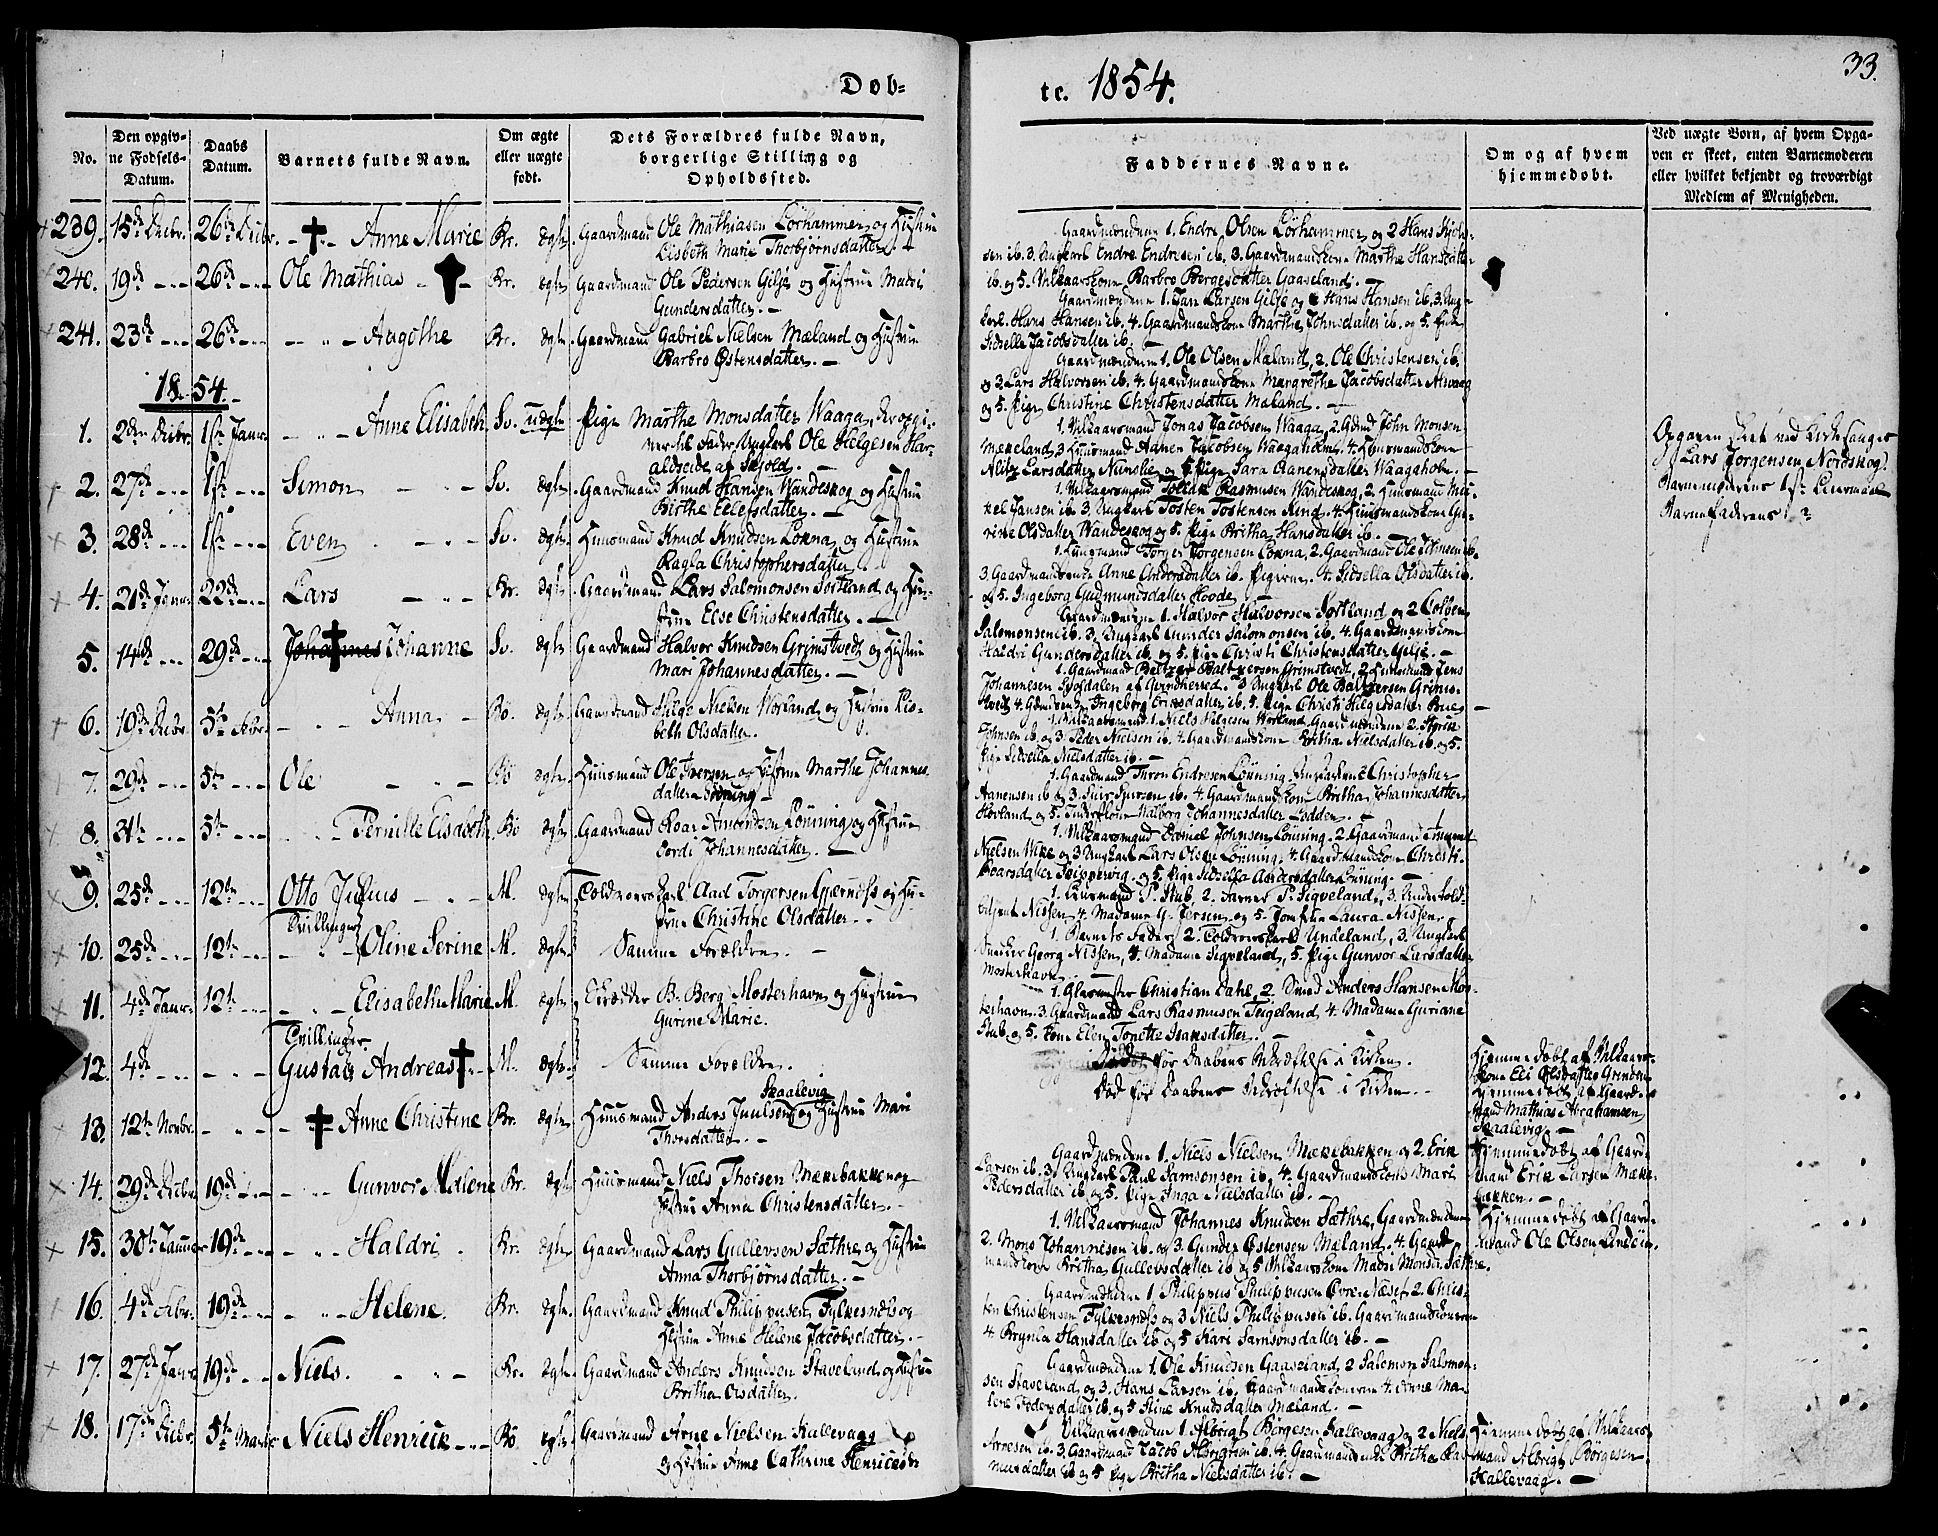 33.
Døb=
te. 1854.
No.
Den opgiv-
ne Fødsels-
Datum.
Daabs
Datum.
Barnets fulde Navn.
Om ægte
eller uægte
født.
Dets Forældres fulde Navn,
borgerlige Stilling og
Opholdssted.
Faddernes Navne.
Om og af hvem
hjemmedøbt.
Ved uægte Børn, af hvem Opga-
ven er skeet, enten Barnemoderen
eller hvilket bekjendt og troværdigt
Medlem af Menigheden.
239. 15de Decbr. 26de Decbr. Anne Marie Br. Ægte Gaardmand Ole Mathiasen Lørhammer og Hustrue
Lisbeth Marie Thorbjørnsdatter
Gaardmændene 1. Endre Olsen Lørhammer og 2 Hans
sen ib. 3. Ungkarl Endre Endresen ib. 3. Gaardmandskone Marthe Hansdatter
ib. og 5. Vilkaarskone Barbro Børgesdatter Gaaseland.
240. 19de 26de Ole Mathias Br. Ægte Gaardmand Ole Pedersen Gilje og Hustrue Madri
Gundersdatter.
Gaardmændene 1. Lars Larsen Gilje og Hans Hansen ib. 3. Ung-
karl Hans Hansen ib. 4. Gaardmandskone Marthe Johnsdatter ib. og 5. Pige
Sidselle Jacobsdatter ib.
241. 23de 26de Aagothe Br. Ægte Gaardmand Gabriel Nielsen Mæland og Hustrue
Barbro Østensdatter.
Gaardmændene 1. Ole Olsen Mæland, 2. Ole Christensen ib.
og 3 Lars Halvorsen ib. 4. Gaardmandskone Margrethe Jacobsdatter
og 5. Pige Christine Christensdatter Mæland.
1854
1. 2den Decbr. 1ste Janr. Anne Elisabeth Sv. uægte Pige Marthe Monsdatter Waaga, hvoropgi-
ver til Fader Ungkarl Ole Helgesen Har-
aldseide af Skjold.
1. Vilkaarsmand Jonas Jacobsen Waaga, 2. Gdmd John Monsen
Mækeland, 3 Huusmand Aanen Jacobsen Waageholm, 4. Huusmandskone
Alitz Larsdatter Nunslie og 5. Pige Sara Aanensdatter Waageholm.
Opgaven skeet ved Kirkesanger
Lars Jørgensen Nordskog.
Barnemoderens 1ste Leiermaal
Barnefaderens ?
2. 27de 1ste Simon Sv. Ægte Gaardmand Knud Hansen Wandeskog og Hustrue
Birthe Eilefsdatter.
1. Vilkaarsmand Tollak Rasmusen Wandeskog, 2. Huusmand Mic-
kel Jansen ib. 3. Ungkarl Tosten Tostensen Rind. 4. Huusmandskone Gu-
Olsdatter Wandeskog og 5. Pige Britha Hansdatter ib.
3. 28de 1ste Even Sv. Ægte Huusmand Knud Knudsen Lokna og Hustrue
Ragla Christophersdatter
1. Huusmand Torger Torgersen Lokna, 2. Gaardmand Ole Johnsen ib.
3. Gaardmandsenke Anne Andersdatter ib. Pigerne 4. Sidsella Olsdatter ib.
og 5. Ingeborg Gudmundsdatter Hovde.
4. 21de Janr. 22de Lars Br. Ægte Gaardmand Lars Salomonsen Sortland og Hu-
strue Else Christensdatter.
Gaardmændene 1. Halvor Halvorsen Sortland og 2 Colben
Salomonsen ib. 3. Ungkarl Gunder Salomonsen ib. 4. Gaardmandskone
Haldri Gundersdatter ib. og 5. Pige Christi Christensdatter Gilje.
5. 14de 29de Johannes Johanne Sv. Ægte Gaardmand Halvor Knudsen Grimstvedt og Hustrue
Mari Johannesdatter.
1. Gaardmand Baltzer Baltzersen Grimstvedt, 2. Huusmand Jens
Johannesen Skogdalen af Qvindherred. 3 Ungkarl Ole Baltzersen Grims-
tvedt 4. Ingeborg Eriksdatter ib. 5. Pige Christi Helgesdatter
6. 19de Decbr. 5te Febr. Anna Bø. Ægte Gaardmand Helge Nielsen Hovland og Hustrue Lis-
beth Olsdatter.
1. Vilkaarsmand 1. Niels Helgesen Hovland, Gaardmændene 2.
Johnsen ib. og 3. Peder Nielsen ib. 4. Gaardmandskone Britha Nielsdatter ib. og 5.
Pige Sidsella Nielsdatter ib.
7. 29de 5te Ole Bø Ægte Huusmand Ole Iversen og Hustrue Marthe Johannes-
datter Lønning
1. Gaardmand Thron Endresen Lønning, Ungkarlene 2 Christopher
Aanensen ib og 3. Siur Siursen ib. 4. Gaardmandskone Britha Johannesdatter
Hovland og 5. Malborg Johannesdatter Lodden.
8. 31te 5te Pernille Elisabeth Bø Ægte Gaardmand Roar Amundsen Lønning og Hustrue
Tordi Johannesdatter.
1. Vilkaarsmand Tormol Johnsen Lønning. 2. Gaardmand Amund
Nielsen Vike og 3 Ungkarl Lars Olsen Lønning. 4. Gaardmandskone Christi
Roarsdatter Teippevig og 5. Pige Sidsella Andersdatter Lønning.
9. 25de 12te Otto Julius M. Ægte Toldroerskarl Aad Torgersen Gjerness og Hu-
strue Christine Olsdatter.
1. Kjøbmand P. Stub, 2. Aarnes P. Sigveland, 3. Undertold-
betjent Nissen, 4. Madame G. Jersen og 5. Jomfrue Laura Nissen.
Tvillinger
10. 25de 12te Oline Serine M. Ægte Samme Forældre.
1. Barnets Fader, 2. Toldroerskarl Undeland, 3. Ungkarl
Snedker Georg Nissen, 4. Madame Sigveland, 5. Pige Gunvor Larsdatter
Mosterhavn
11. 4de Janr. 12te Elisabeth Marie M. Ægte Skrædder B. Berg Mosterhavn og Hustrue
Gurine Marie.
1. Glasmester Christian Dahl, 2. Smed Anders Hansen Mos-
terhavn. 3. Gaardmand Lars Rasmusen Teigeland, 4. Madame Guriane
Stub og 5. Kone Elen Tonette Isaksdatter.
Tvillinger
12. 4de Gustav Andreas M. Ægte Samme Forældre.
Død før Daabens Bekræftelse i Kirken.
Hjemmedøbt af Vilkaars-
kone Eli Olsdatter Grinden
13. 12te Novbr. Anne Christine Br. Ægte Huusmand Anders Juulsen Skaalevig og Hustrue Mari
Thorsdatter.
Død før Daabens Bekræftelse i Kirken.
Hjemmedøbt af Gaard-
mand Mathias Abrahamsen
Skaalevig.
14. 29de Decbr. 19de Gunvor Malene Br. Ægte Huusmand Niels Thorsen Mækebakken og
Hustrue Anna Christensdatter.
Gaardmændene 1. Niels Nielsen Mækebakken og 2. Erik
Larsen ib. 3. Ungkarl Paul Samsonsen ib. 4. Gaardmandskone Mari
Pedersdatter ib. og 5. Pige Inga Nielsdatter ib.
Hjemmedøbt af Gaard-
mand Erik Larsen Mæke-
bakken.
15. 30te Januar 19de Haldri Br. Ægte Gaardmand Lars Gullevsen Sæthre og Hustrue
Anna Thorbjørnsdatter.
1. Vilkaarsmand Johannes Knudsen Sæthre, Gaardmændene
2. Mons Johannesen ib. og 3. Gunder Østensen Mæland. 4. Gaard-
mandskone Britha Gullevsdatter ib. og 5 Vilkaarskone Madri Monsd. Sæthre.
Hjemmedøbt af Gaard-
mand Ole Olsen Lindøen.
16. 4de Febr. 19de Helene. Br. Ægte Gaardmand Knud Philippusen Fylkesnæs og
Hustrue Anne Helene Jacobsdatter.
Gaardmændene 1 Philippus Philippusen Øvrenæset 2. Chris-
ten Christensen Fylkesnæss og 3 Niels Philippusen ib. Gaardmandskonerne
4. Brynla Hansdatter ib og 5 Kari Samsonsdatter ib.
17. 27de Janr. 19de Niels. Br. Ægte Gaardmand Anders Knudsen Staveland og Hustrue
Britha Olsdatter.
Gaardmændene 1. Ole Knudsen Gaaseland, 2 Salomon Salomon-
sen Staveland og 3. Hans Larsen ib. Gaardmandskonerne 4. Anne Ma-
lene Pedersdatter ib. og 5 Stine Knudsdatter Mæland.
18. 17de Decbr. 5te Marts Niels Henrick Bø Ægte Gaardmand Arne Nielsen Kallevaag
og Hustrue Anne Cathrine Henricsdtr
Vilkaarsmændene 1 Albrigt Børgesen Kallevaag og 2 Niels
Arnesen ib. 3. Gaardmand Jacob Albrigtsen ib. 4. Gaardmandsenke Britha Ras-
musdatter ib og 5 Pige Britha Nielsdatter ib.
Hjemmedøbt af Vilkaars-
mand Albrigt Børgesen
Kallevaag.